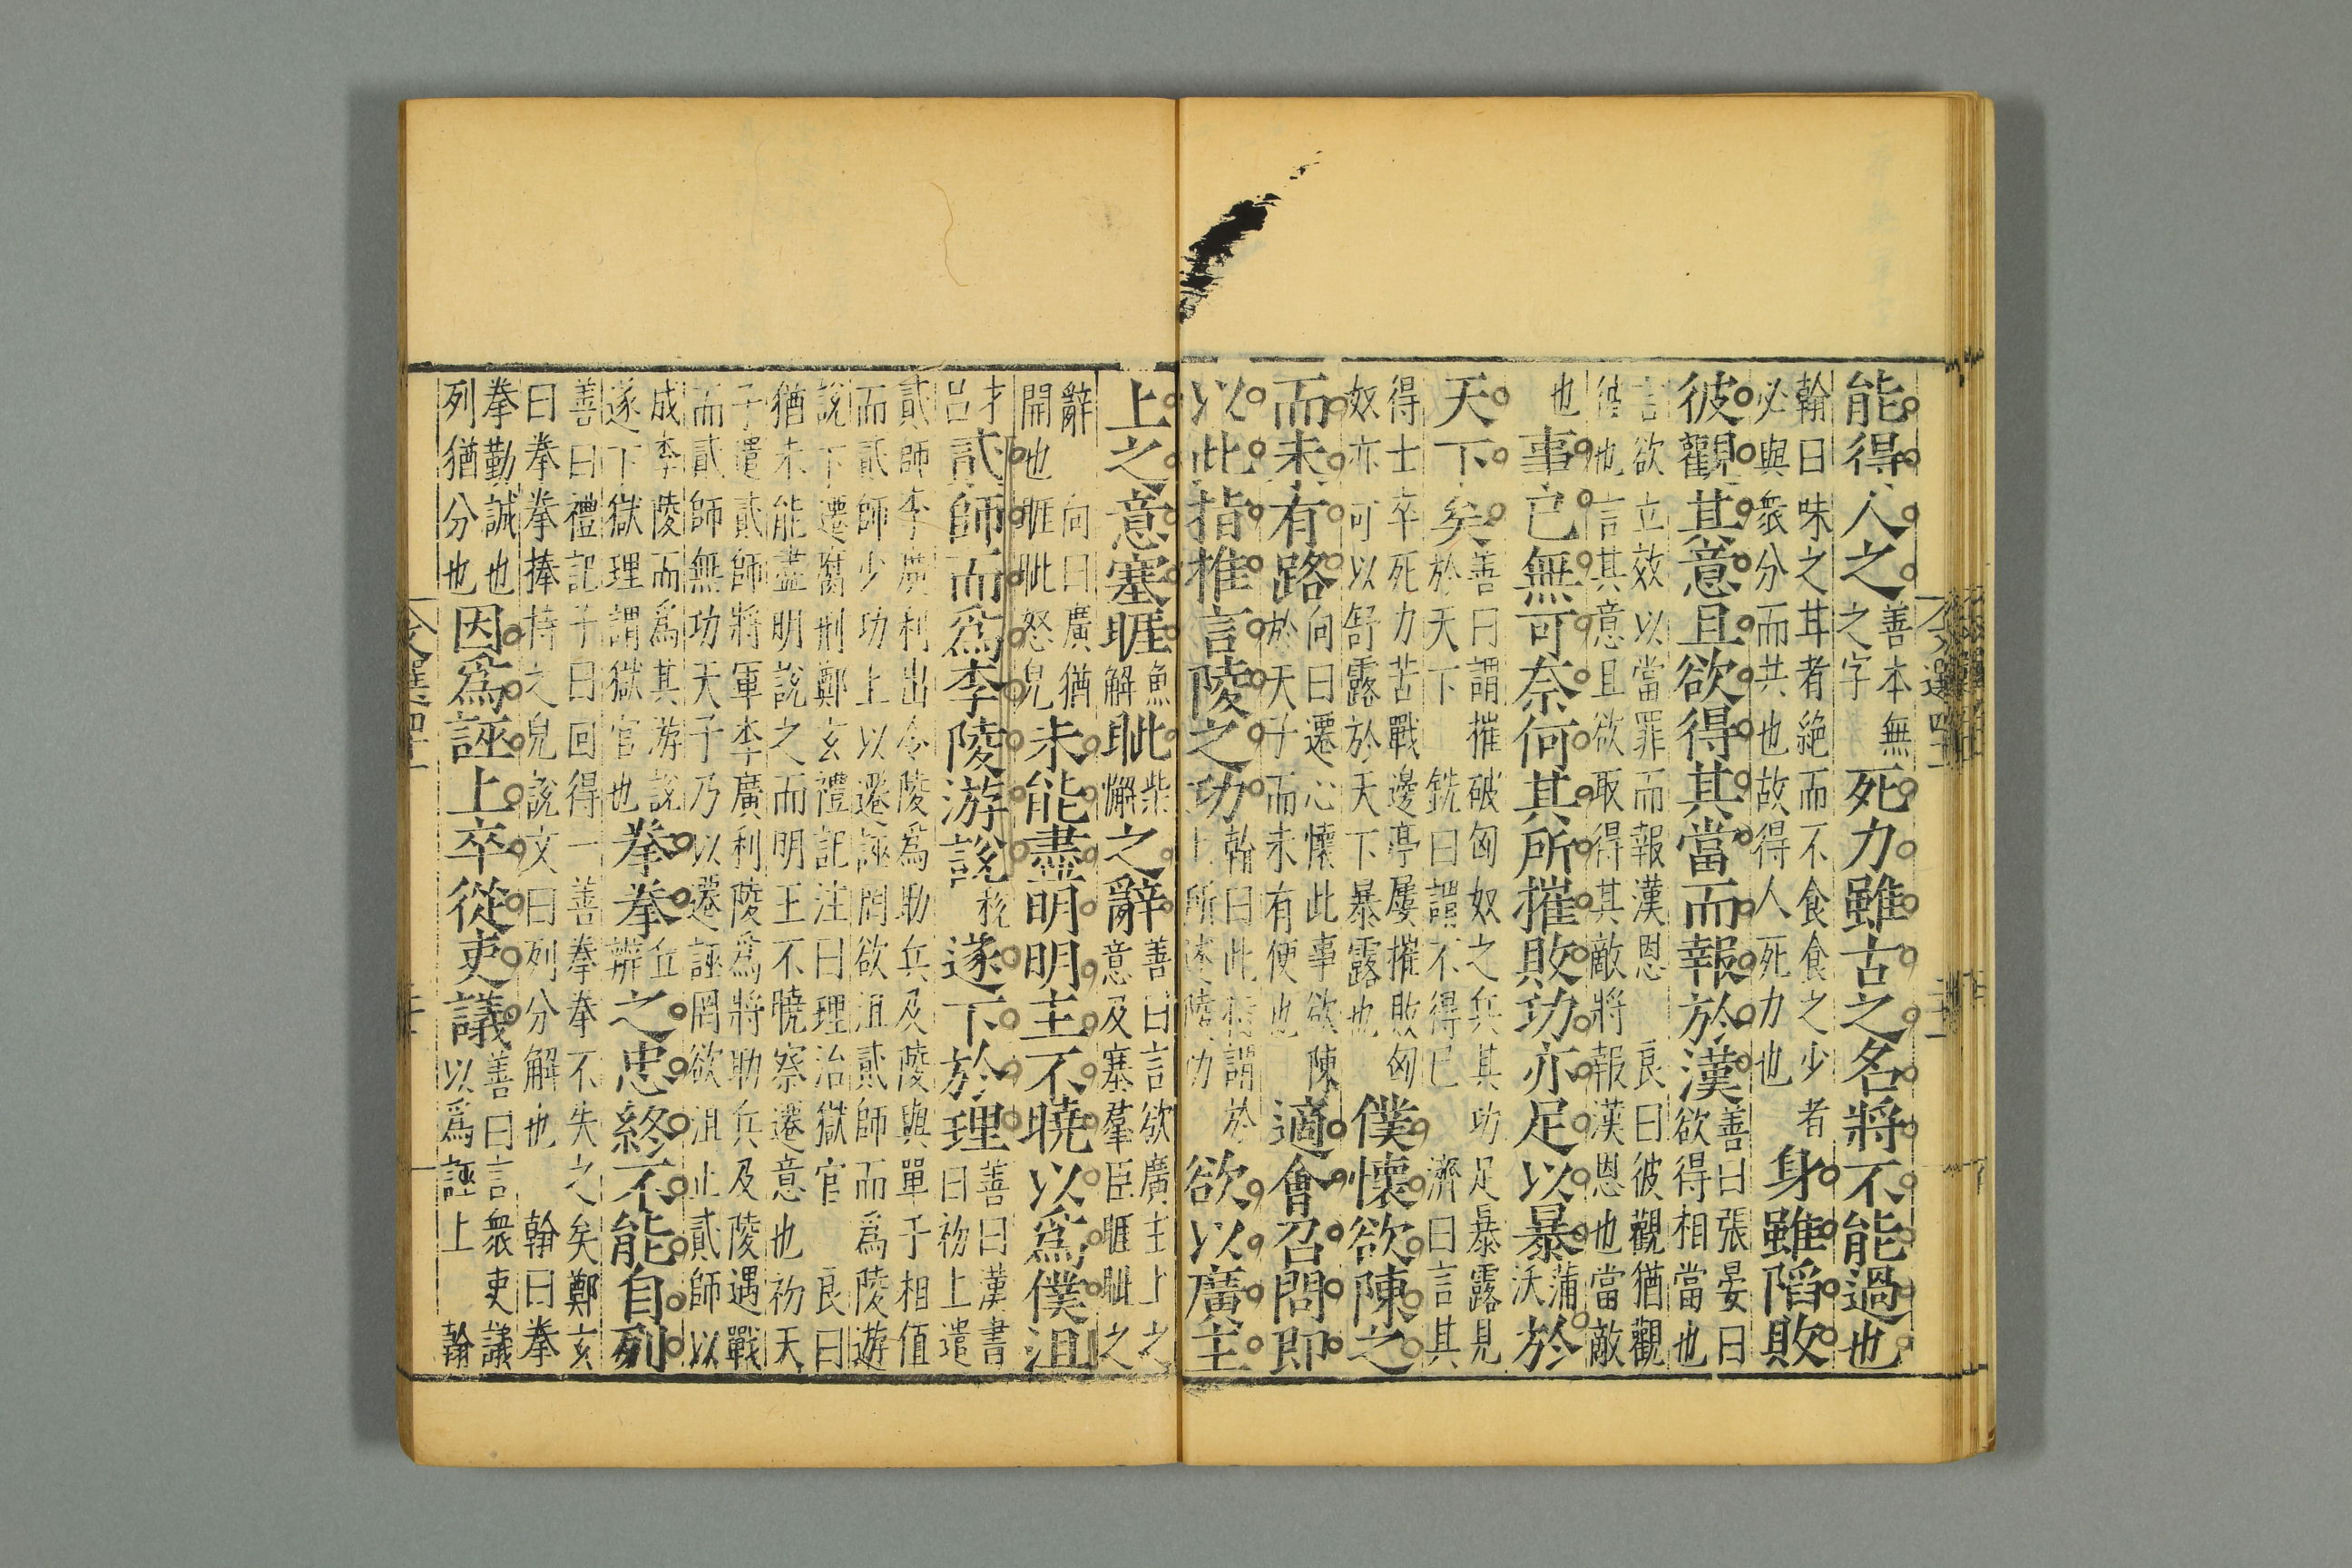 能得人之善本無之字死力雖古之名將不能過也
翰曰味之甘者絶而不食食之少者必與衆分而共也故得人死力也身雖陷敗
彼觀其意且欲得其當而報於漢善曰張晏曰欲得相當也
言欲立效以當罪而報漢恩 良曰彼觀猶觀彼也言其意且欲取得其敵將報漢恩也當敵
也事已無可奈何其所摧敗功亦足以暴蒲沃於
天下矣善曰謂摧破匈奴之兵其功足暴露見於天下 銑曰謂不得已 濟曰言其
得士卒死力苦戰邊亭屢摧敗匈奴亦可以舒露於天下暴露也僕懷欲陳之
而未有路向曰遷心懷此事欲陳於天子而未有便也適會召問即
以此指推言陵之功翰曰此指謂於上所述陵功欲以廣主
上之意塞睚魚解眦柴懈之辭善曰言欲廣主上之意及塞羣臣睚眦之
辭 向曰廣猶開也睚眦怒皃未能盡明明主不曉以爲僕沮
才呂貳師而爲李陵游說稅遂下於理善曰漢書曰初上遣
貳師李廣利出令陵爲助兵及陵與單于相值而貳師少功上以遷誣罔欲沮貳師而爲陵遊
說下遷腐刑鄭玄禮記注曰理治獄官 良曰猶未能盡明說之而明王不曉察遷意也初天
子遣貳師將軍李廣利陵爲將助兵及陵遇戰而貳師無功天子乃以遷誣罔欲沮止貳師以
成李陵而爲其游說遂下獄理謂獄官也拳拳丘辨之忠終不能自列
善曰禮記子曰回得一善拳拳不失之矣鄭玄曰拳拳捧持之皃說文曰列分解也 翰曰拳
拳勤誠也列猶分也因爲誣上卒從吏議善曰言衆吏議以爲誣上 翰